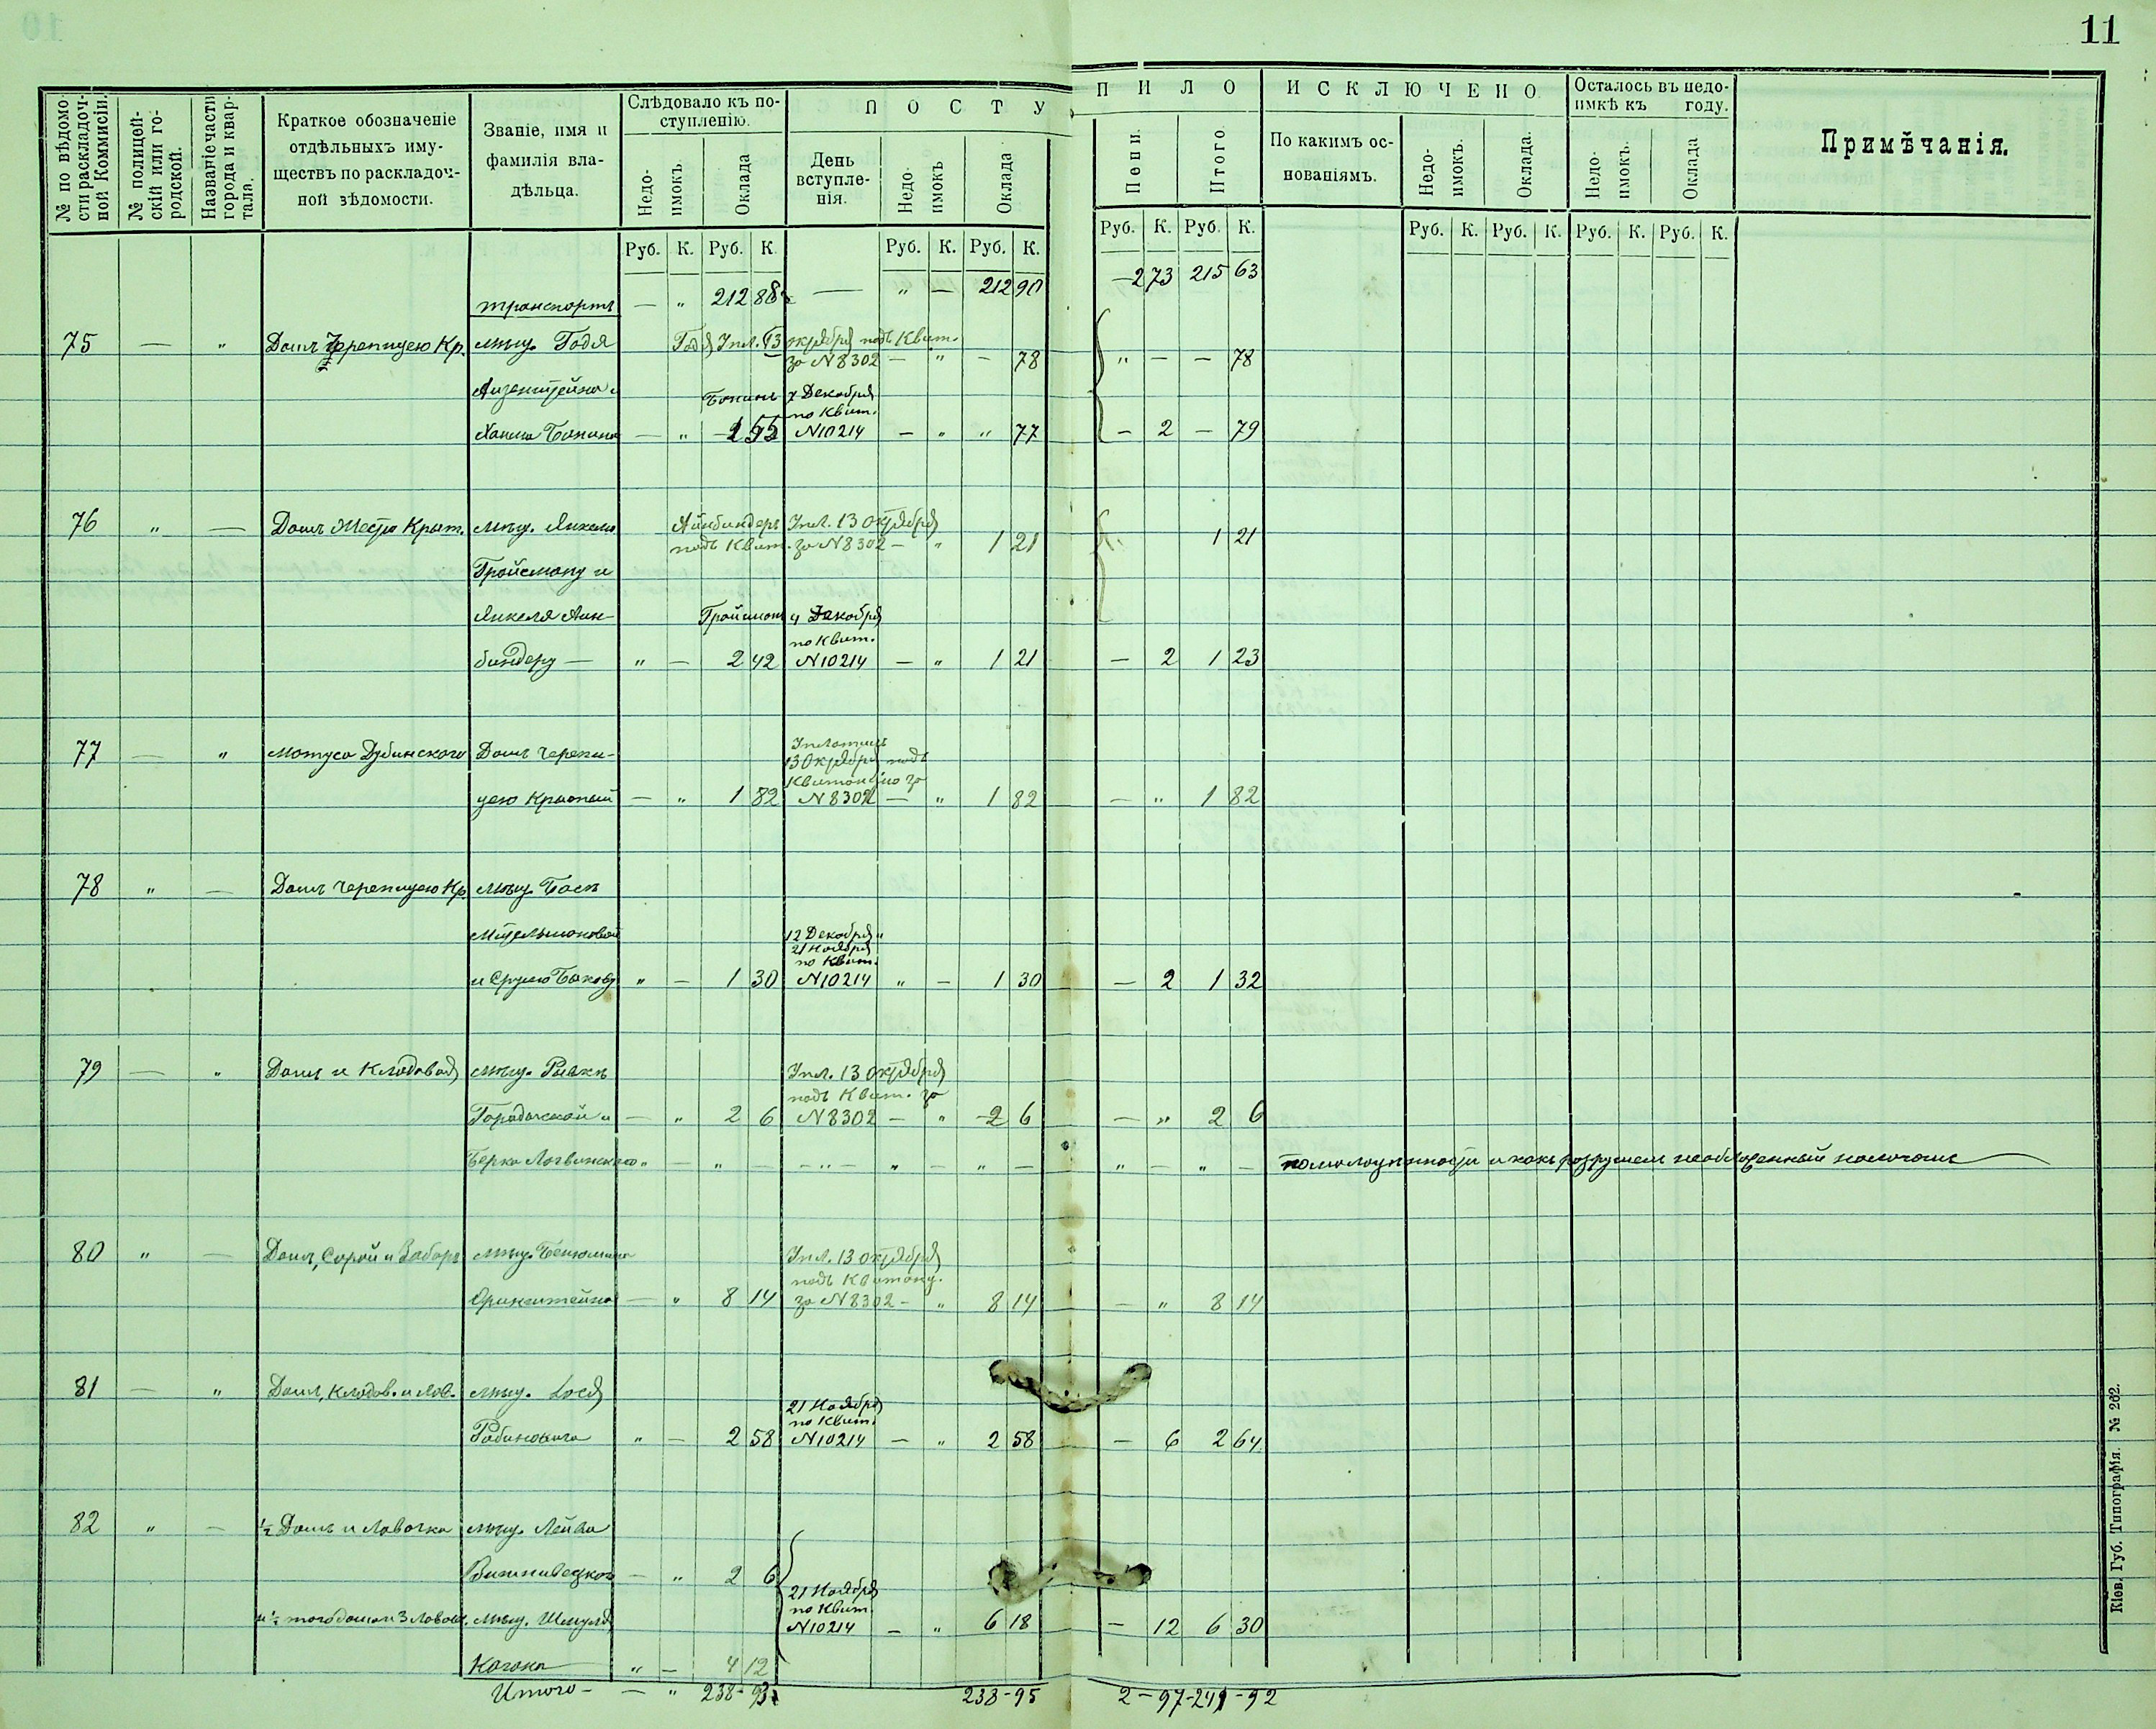 11
№ по вѣдомости раскладочной Коммисіи.
№ полицейскій или городской.
Названіе части города и квартала.
Краткое обозначеніе отдѣльныхъ имуществъ по раскладочной вѣдомости.
Званіе, имя и фамилія владѣльца.
Слѣдовало къ поступленію.
Недоимокъ.
Оклада
П О С Т У П И Л О
День вступленія.
Недоимокъ
Оклада
Пени.
Итого.
И С К Л Ю Ч Е Н О
По какимъ основаніямъ.
Недоимокъ.
Оклада.
Осталось въ недоимкѣ къ году.
Недоимокъ.
Оклада
Примѣчанія.
Руб. К. Руб. К. Руб. К. Руб. К. Руб. К. Руб. К. Руб. К. Руб. К. Руб. К. Руб. К.
транспортъ — " 212 88 — " — 212 90 — 2 73 215 63
75 — " Домъ Черепицею Кр. мѣщ. Годя Годя Упл. 13 октября подъ Квит.
за N 8302 — " — 78 " — — 78
Айзенштейна и Бакинъ 7 Декабря
по Квит.
Бакина — " 1 55 N 10214 — " " 77 — 2 — 79
76 " — Домъ Жестю Крыт. мѣщ. Янкелю Айнбиндеръ Упл. 13 Октября
подъ Квит. за N 8302 — " 1 21 1 21
Гройсману и
Янкеля Айн- Гройсманъ 4 Декабря
по Квит.
биндеру — " — 2 42 N 10214 — " 1 21 — 2 1 23
77 — " Мотуса Дубинского Домъ Черепи- Уплатилъ
13 Октября подъ
Квитанцію за
цею Крытый — " 1 82 N 8302 — " 1 82 — " 1 82
78 " — Домъ Черепицею Кр. мѣщ. Басѣ
Мительмановой 12 Декабря и
21 Ноября
по Квит.
и Срулю Бакову " — 1 30 N 10214 " — 1 30 — 2 1 32
79 — " Домъ и Кладовая мѣщ. Ривкѣ Упл. 13 Октября
подъ Квит. за
Городоской и — " 2 6 N 8302 — " 2 6 — " 2 6
Берка Логвинского " — " — " — " — " — " — " —
80 " — Домъ, Сарай и Заборъ мѣщ. Бенюмина Упл. 13 октября
подъ Квитанц.
Оринштейна — " 8 14 за N 8302 — " 8 14 — " 8 14
81 — " Домъ, Кладов. и Лав. мѣщ. Іося
21 Ноября
по Квит.
Рабинокого " — 2 58 N 10214 — " 2 58 — 6 2 64
82 " — ½ Домъ и Лавочка мѣщ. Лейба
Вишнивецкого — " 2 6
21 Ноября
по Квит.
и ½ того дома и 3 Лавоч. мѣщ. Шмуля N 10214 — " 6 18 — 12 6 30
Когана " — 4 12
Итого — — " 238 - 93 238 - 95 2 - 97 - 241 - 92
Кіев. Губ. Типографія. № 262.